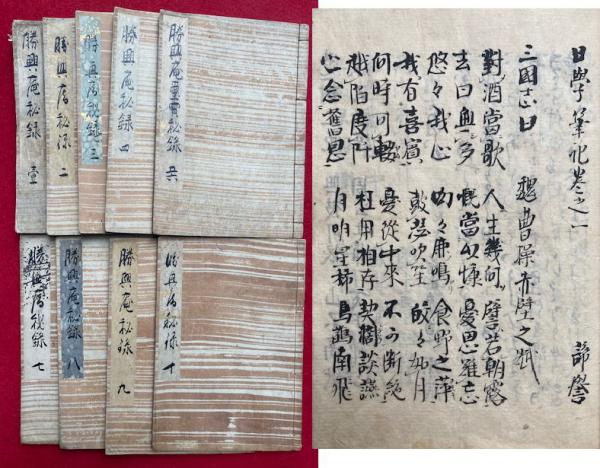 勝興庵秘録 壹
勝興庵秘録 二
勝興庵秘録 三
勝興庵秘録 四
勝興庵重寶秘録 五六
勝興庵秘録 七
勝興庵秘録 八
勝興庵秘録 九
勝興庵秘録 十
日學筆化巻之一
三國志曰 魏曹操赤壁之
對酒當歌 人生幾何 譬若朝露
去日無多 慨當以慷 憂思難忘
悠々我心 呦々鹿鳴 食野之萍
我有喜賓 鼓瑟吹笙 皎々如月
何時可輟 憂從中來 不可断絶
越陌度阡 枉用相存 契濶談讌
心念舊恩 月明星稀 烏鵲南飛